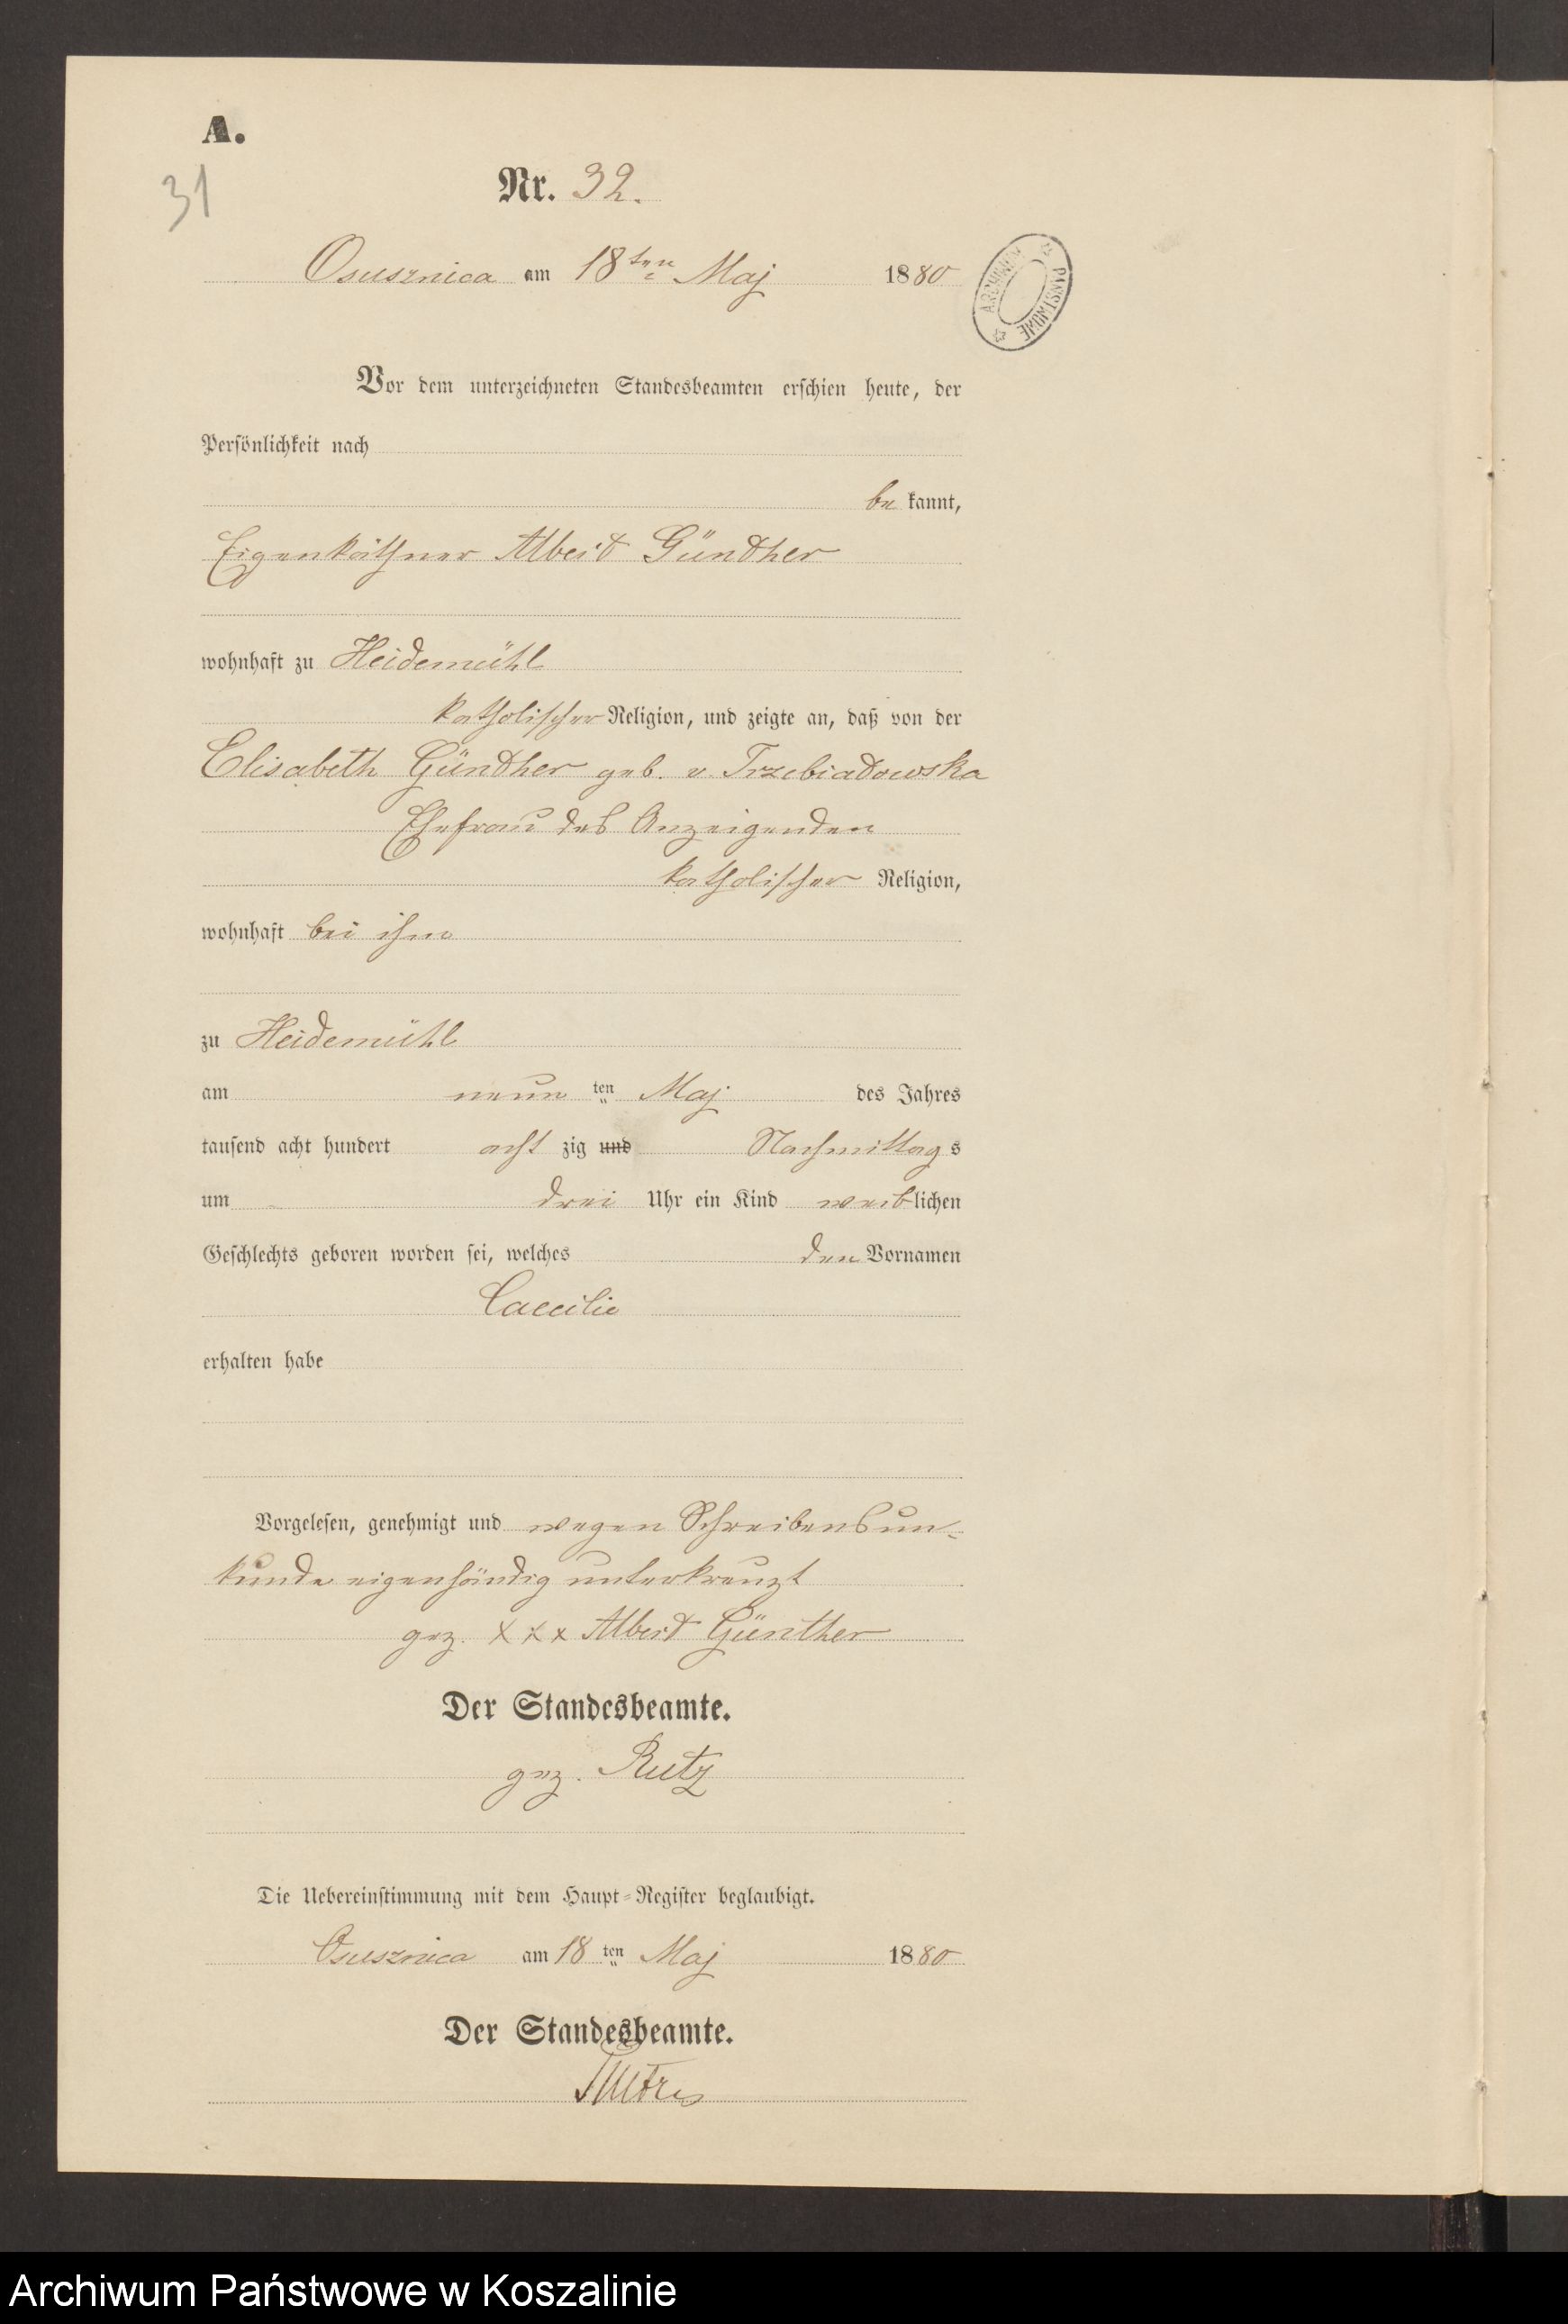 A.
31
Nr. 32.
Osusznica am 18ten Maj 1880
ARCHIWUM PAŃSTWOWE
Vor dem unterzeichneten Standesbeamten erschien heute, der
Persönlichkeit nach
be kannt,
Eigenkäthner Albert Günther
wohnhaft zu Heidemühl
katholischer Religion, und zeigte an, daß von der
Elisabeth Günther geb. v. Trzebiatowska
Ehefrau des Anzeigenden
katholischer Religion,
wohnhaft bei ihm
zu Heidemühl
am neun ten Maj des Jahres
tausend acht hundert acht zig und Nachmittags
um drei Uhr ein Kind weiblichen
Geschlechts geboren worden sei, welches den Vornamen
Caecilie
erhalten habe
Vorgelesen, genehmigt und wegen Schreibensun-
kunde eigenhändig unterkreuzt
gez. xxx Albert Günther
Der Standesbeamte.
gez. Rutz
Die Uebereinstimmung mit dem Haupt-Register beglaubigt.
Osusznica am 18 ten Maj 1880
Der Standesbeamte.
Archiwum Państwowe w Koszalinie